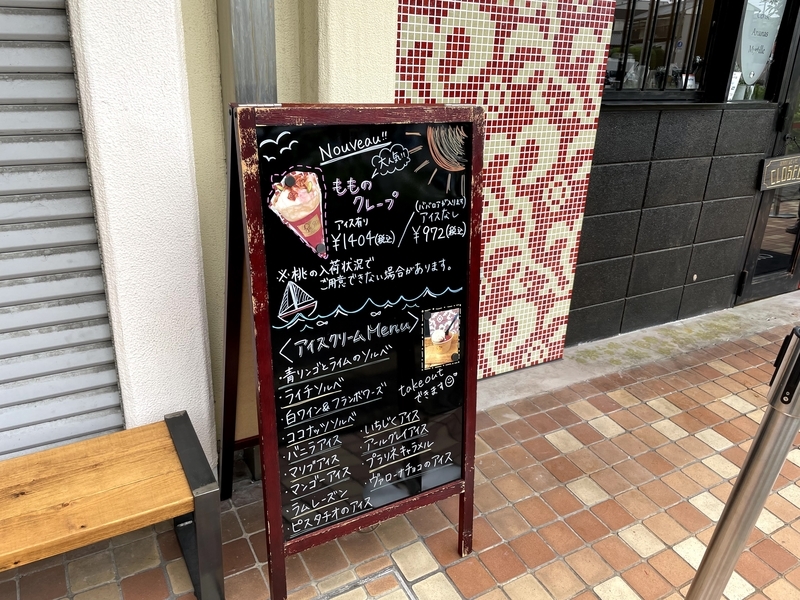 Nouveau!!
大人気!!
ももの
クレープ
アイス有り
¥1404(税込)
/
(ババロアが入ります)
アイスなし
¥972(税込)
※桃の入荷状況で
ご用意できない場合があります。
〈アイスクリームMenu〉
・青リンゴとライムのソルベ
・ライチソルベ
・白ワイン&フランボワーズ
・ココナッツソルベ
・バニラアイス
・マリブアイス
・マンゴーアイス
・ラムレーズン
・ピスタチオのアイス
・いちじくアイス
・アールグレイアイス
・プラリネキャラメル
・ヴァローナチョコのアイス
takeout
できます
CLOSED